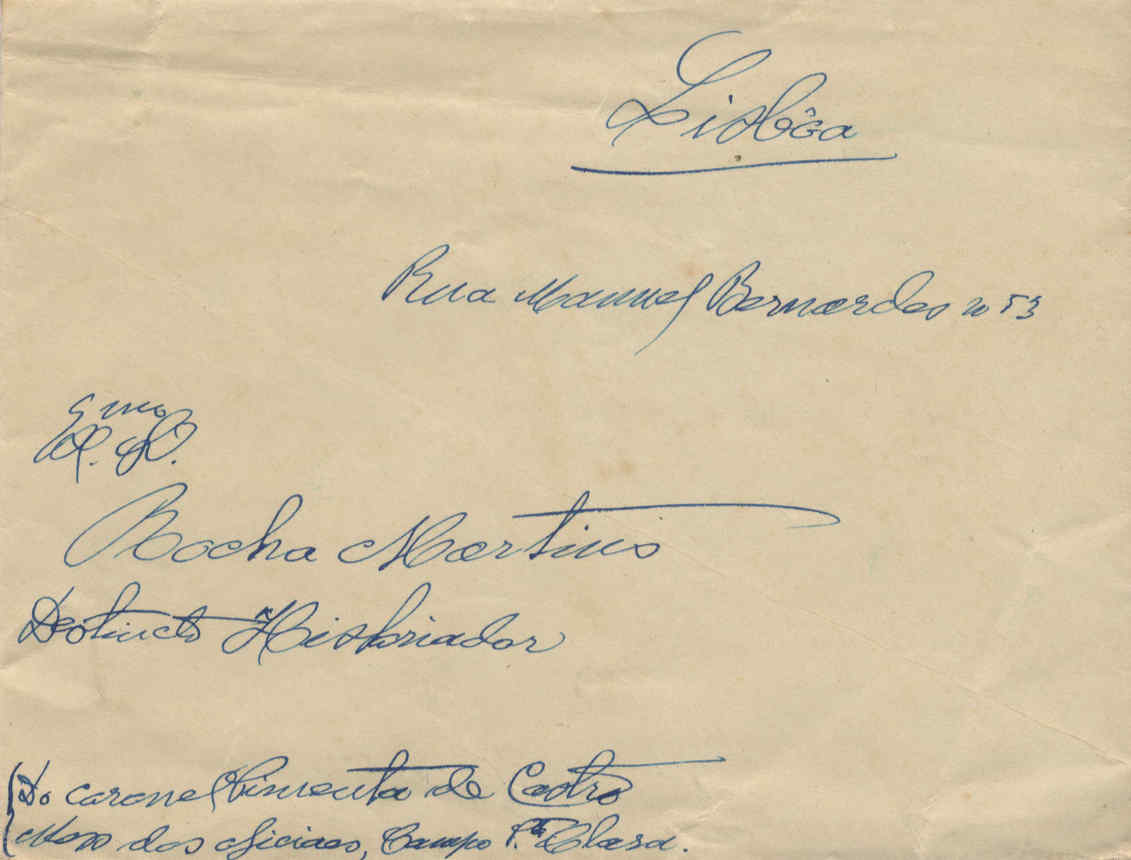 Lisbôa
Rua Manuel Bernardes nº 53
Rocha Martins
Distincto Historiador
Do coronel Pimenta de Castro
dos Campo Clara.